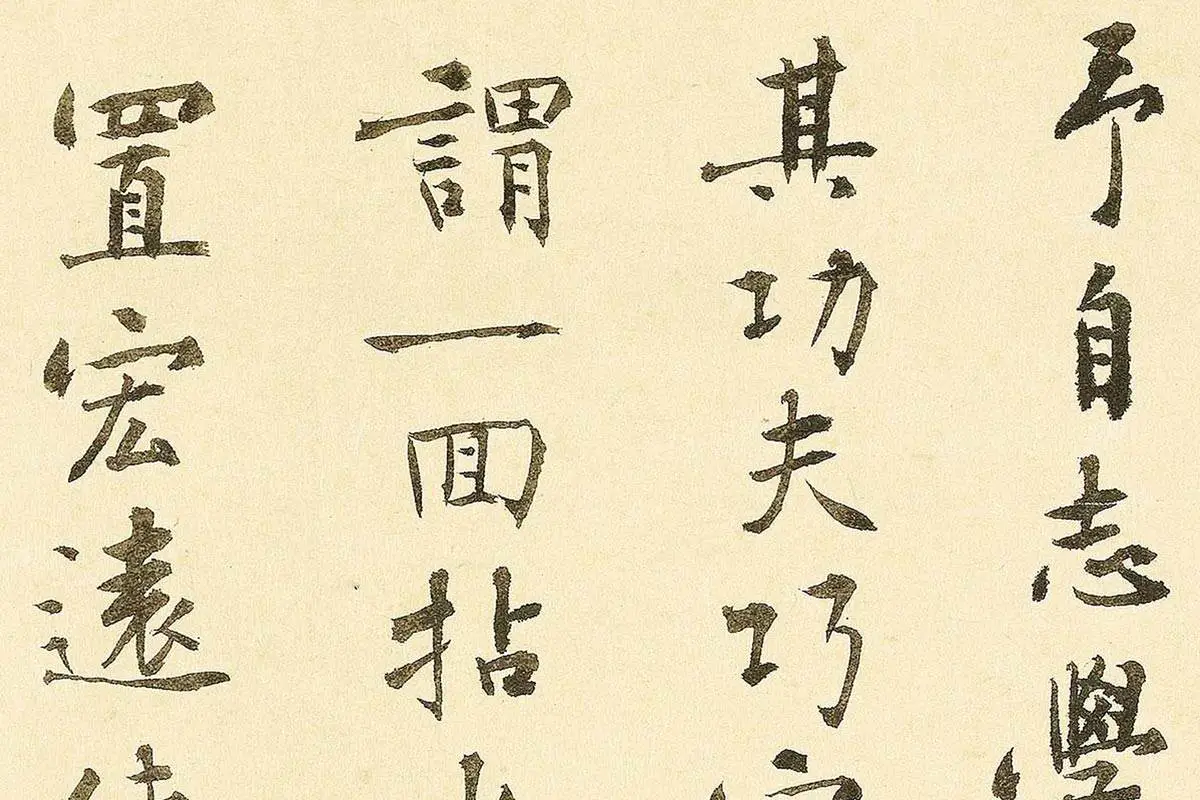 予自志學
其功夫巧
謂一回拈
置宏遠